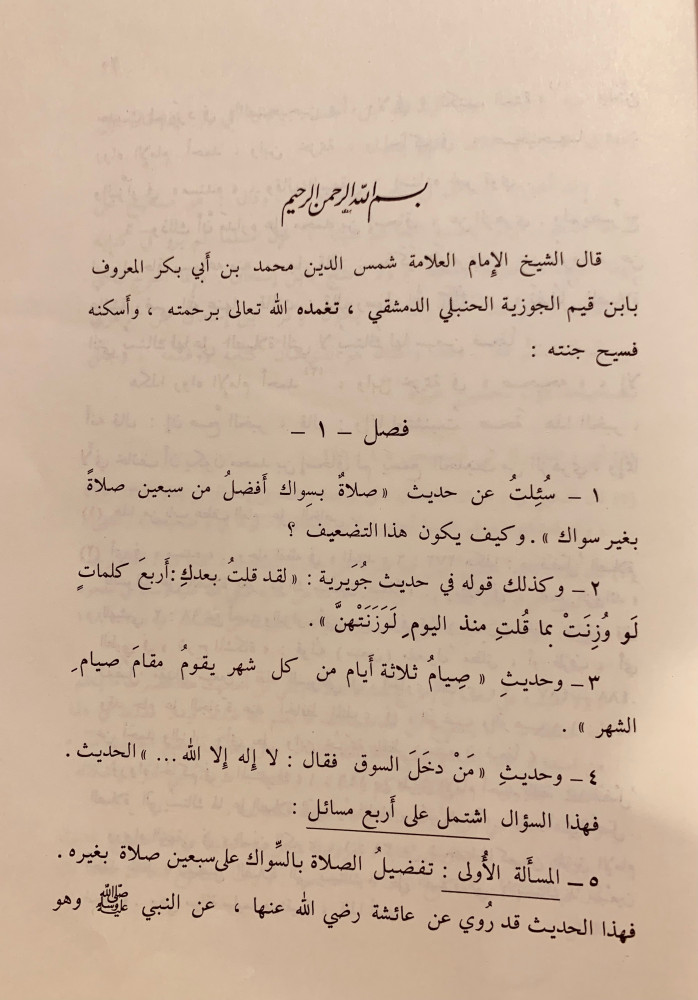 بسم الله الرحمن الرحيم
قال الشيخ الإِمام العلامة شمس الدين محمد بن أَبي بكر المعروف
بابن قيم الجوزية الحنبلي الدمشقي ، تغمده الله تعالى برحمته ، وأَسكنه
فسيح جنته :
فصل – ١ –
١ – سُئِلتُ عن حديث « صلاةٌ بسِواك أَفضلُ من سبعين صلاةً
بغير سواك » . وكيف يكون هذا التضعيف ؟
٢ – وكذلك قوله في حديث جُوَيرية : « لقد قلتُ بعدكِ : أَربعَ كلماتٍ
لَو وُزِنَتْ بما قُلتِ منذ اليومِ لَوَزَنَتْهنَّ » .
٣ – وحديثِ « صِيامُ ثلاثة أَيام من كل شهر يقومُ مقامَ صيامِ
الشهر » .
٤ – وحديثِ « مَنْ دخَلَ السوق فقال : لا إِله إِلا الله ... » الحديث .
فهذا السؤال اشتمل على أَربع مسائل :
٥ – المسأَلة الأُولى : تفضيلُ الصلاة بالسِّواك على سبعين صلاة بغيره .
فهذا الحديث قد رُوي عن عائشة رضي الله عنها ، عن النبي ﷺ وهو